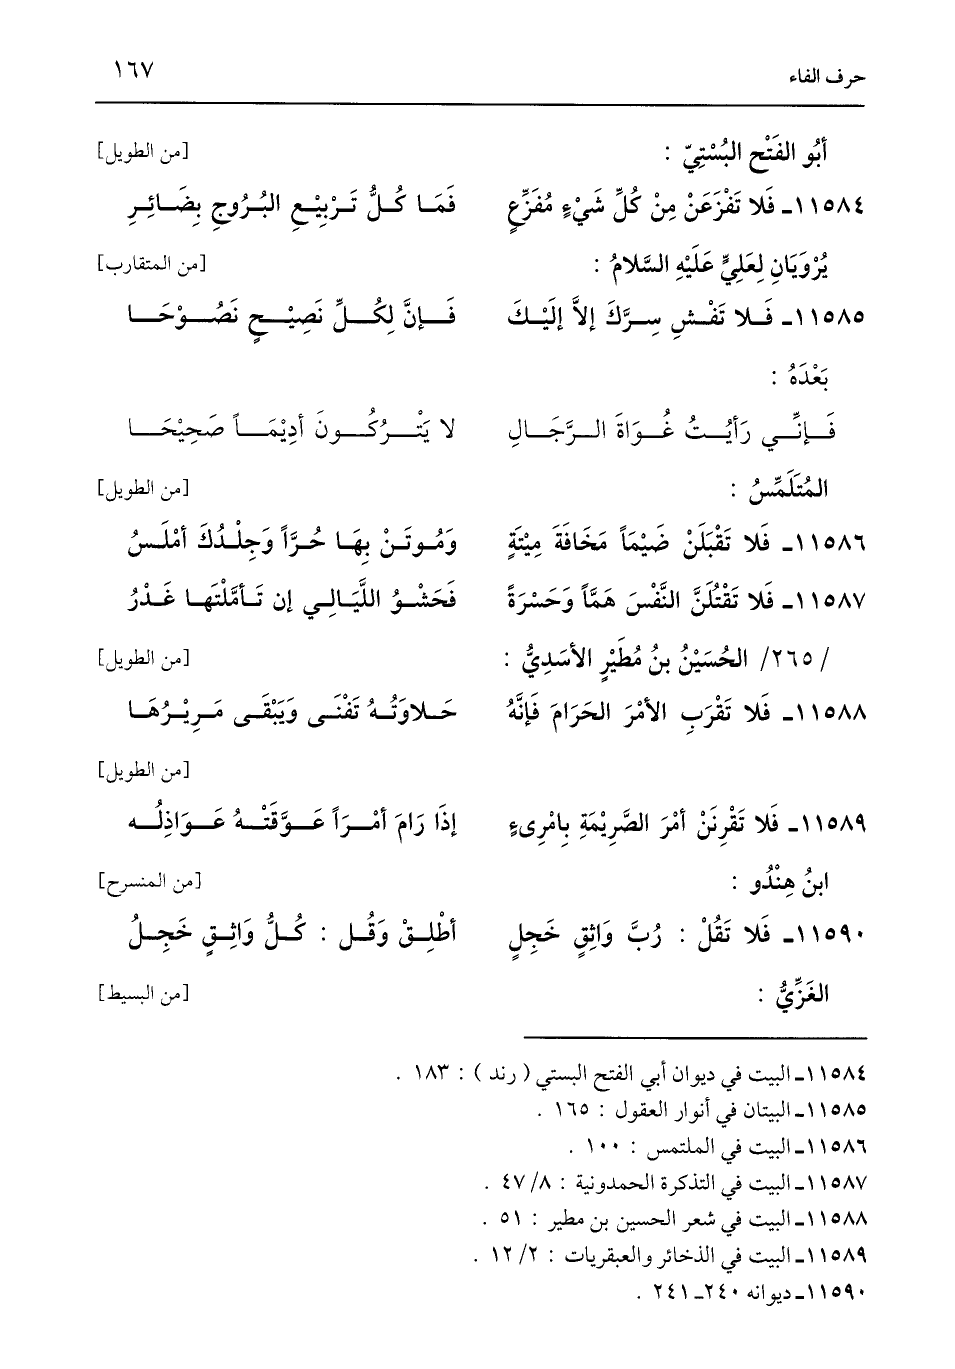 حرف الفاء ١٦٧
أَبُو الفَتْحِ البُسْتِيّ : [من الطويل]
١١٥٨٤ـ فَلا تَفْزَعَنْ مِنْ كُلِّ شَيْءٍ مُفَزِّعٍ فَمَا كُلُّ تَرْبِيْعِ البُرُوجِ بِضَائِرِ
يُرْوَيَانِ لِعَلِيٍّ عَلَيْهِ السَّلامُ : [من المتقارب]
١١٥٨٥ـ فَلا تَفْشِ سِرَّكَ إلاَّ إلَيْكَ فَإنَّ لِكُلِّ نَصِيْحٍ نَصُوْحَا
بَعْدَهُ :
فَإنِّي رَأيْتُ غُوَاةَ الرَّجَالِ لا يَتْرُكُونَ أدِيْمَاً صَحِيْحَا
المُتَلَمِّسُ : [من الطويل]
١١٥٨٦ـ فَلا تَقْبَلَنْ ضَيْمَاً مَخَافَةَ مِيْتَةٍ وَمُوتَنْ بِهَا حُرَّاً وَجِلْدُكَ أمْلَسُ
١١٥٨٧ـ فَلا تَقْتُلَنَّ النَّفْسَ هَمَّاً وَحَسْرَةً فَحَشْوُ اللَّيَالِي إن تَأمَّلْتَهَا غَدْرُ
/ ٢٦٥/ الحُسَيْنُ بنُ مُطَيْرٍ الأسَدِيُّ : [من الطويل]
١١٥٨٨ـ فَلا تَقْرَبِ الأمْرَ الحَرَامَ فَإنَّهُ حَلاوَتُهُ تَفْنَى وَيَبْقَى مَرِيْرُهَا
[من الطويل]
١١٥٨٩ـ فَلا تَقْرِنَنْ أمْرَ الصَّرِيْمَةِ بِامْرِىءٍ إذَا رَامَ أمْرَاً عَوَّقَتْهُ عَوَاذِلُه
ابنُ هِنْدُو : [من المنسرح]
١١٥٩٠ـ فَلا تَقُلْ : رُبَّ وَاثِقٍ خَجِلٍ أطْلِقْ وَقُل : كُلُّ وَاثِقٍ خَجِلُ
الغَزِّيُّ : [من البسيط]
١١٥٨٤ـ البيت في ديوان أبي الفتح البستي ( رند ) : ١٨٣ .
١١٥٨٥ـ البيتان في أنوار العقول : ١٦٥ .
١١٥٨٦ـ البيت في الملتمس : ١٠٠ .
١١٥٨٧ـ البيت في التذكرة الحمدونية : ٨/ ٤٧ .
١١٥٨٨ـ البيت في شعر الحسين بن مطير : ٥١ .
١١٥٨٩ـ البيت في الذخائر والعبقريات : ٢/ ١٢ .
١١٥٩٠ـ ديوانه ٢٤٠ـ ٢٤١ .